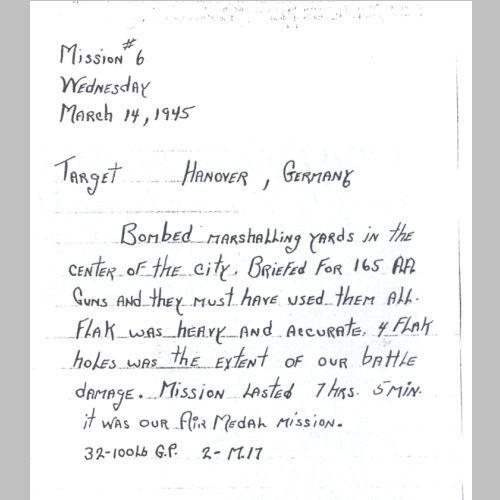 Mission #6
Wednesday
March 14, 1945
Target Hanover, Germany
Bombed marshalling yards in the
center of the city. Briefed for 165 AA
Guns and they must have used them all.
Flak was heavy and accurate. 4 Flak
holes was the extent of our battle
damage. Mission lasted 7 hrs. 5 min.
it was our Air Medal mission.
32-100lb G.P. 2-M.17